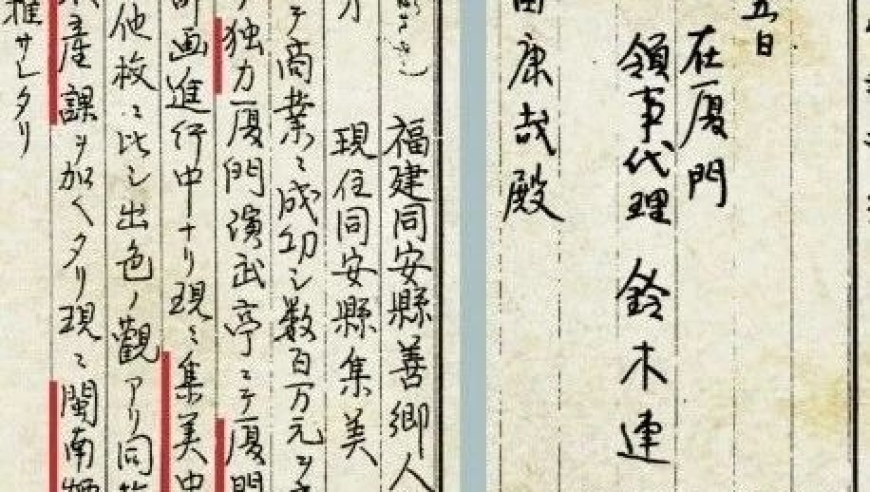 五日
在厦門
領事代理 鈴木連
康哉殿
福建同安縣善郷人
才 現住同安縣集美
テ商業ニ成功シ数百万元ヲ
独力厦門演武亭ニテ厦門
画進行中ナリ現ニ集美中
他校ニ比シ出色ノ觀アリ同
産課ヲ加ヘタリ現ニ閩南
推サレタリ